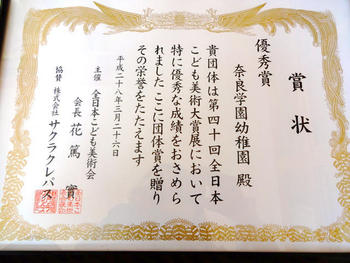 賞状
優秀賞
奈良学園幼稚園 殿
貴団体は第四十回全日本
こども美術大賞展において
特に優秀な成績をおさめら
れました ここに団体賞を贈り
その栄誉をたたえます
平成二十八年三月二十六日
主催 全日本こども美術会
会長 花篤 實
協賛 株式会社 サクラクレパス